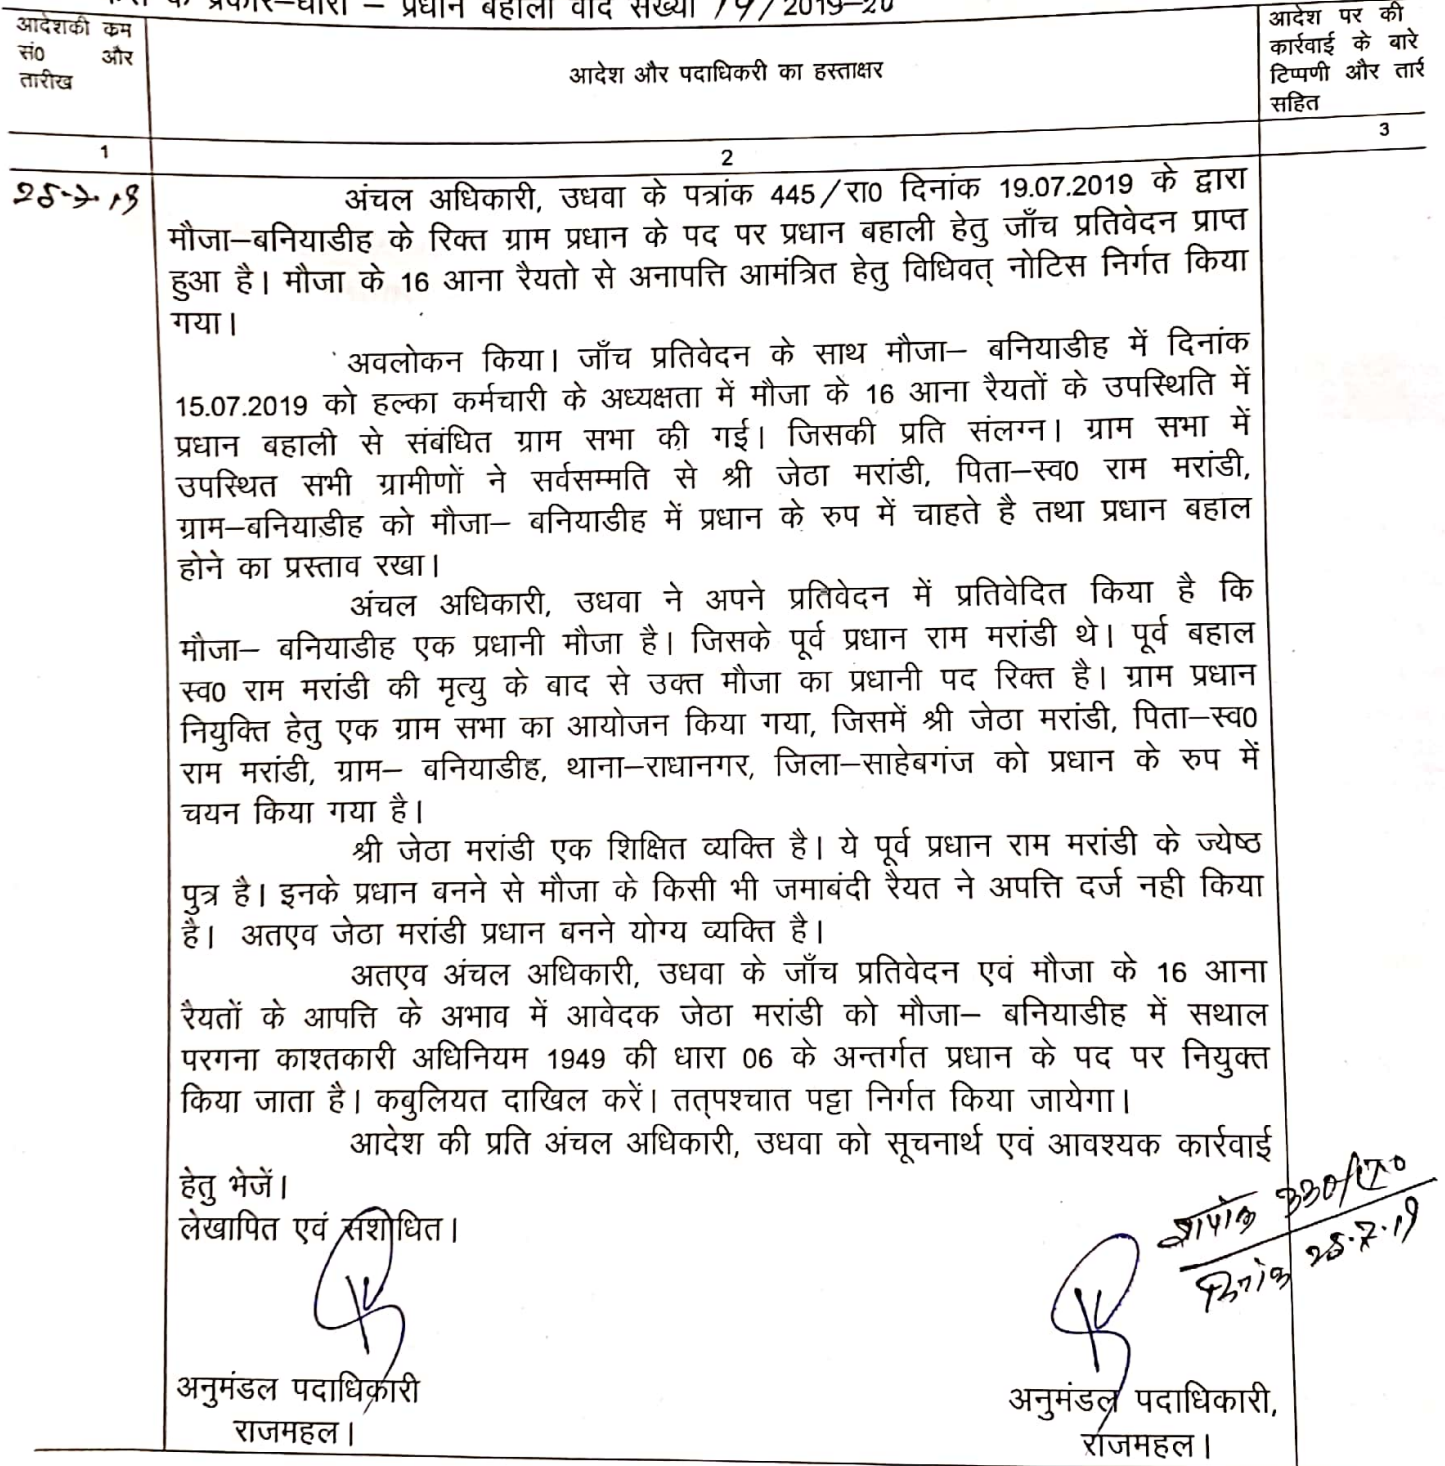 के प्रकार–धारा – प्रधान बहाली वाद संख्या 19/2019–20
आदेशकी कम
सं0 और
तारीख
आदेश और पदाधिकरी का हस्ताक्षर
आदेश पर की
कार्रवाई के बारे
टिप्पणी और तारी
सहित
1
2
3
25-7-19
अंचल अधिकारी, उधवा के पत्रांक 445/रा0 दिनांक 19.07.2019 के द्वारा
मौजा–बनियाडीह के रिक्त ग्राम प्रधान के पद पर प्रधान बहाली हेतु जाँच प्रतिवेदन प्राप्त
हुआ है। मौजा के 16 आना रैयतो से अनापत्ति आमंत्रित हेतु विधिवत् नोटिस निर्गत किया
गया।
अवलोकन किया। जाँच प्रतिवेदन के साथ मौजा– बनियाडीह में दिनांक
15.07.2019 को हल्का कर्मचारी के अध्यक्षता में मौजा के 16 आना रैयतों के उपस्थिति में
प्रधान बहाली से संबंधित ग्राम सभा की गई। जिसकी प्रति संलग्न। ग्राम सभा में
उपस्थित सभी ग्रामीणों ने सर्वसम्मति से श्री जेठा मरांडी, पिता–स्व0 राम मरांडी,
ग्राम–बनियाडीह को मौजा– बनियाडीह में प्रधान के रुप में चाहते है तथा प्रधान बहाल
होने का प्रस्ताव रखा।
अंचल अधिकारी, उधवा ने अपने प्रतिवेदन में प्रतिवेदित किया है कि
मौजा– बनियाडीह एक प्रधानी मौजा है। जिसके पूर्व प्रधान राम मरांडी थे। पूर्व बहाल
स्व0 राम मरांडी की मृत्यु के बाद से उक्त मौजा का प्रधानी पद रिक्त है। ग्राम प्रधान
नियुक्ति हेतु एक ग्राम सभा का आयोजन किया गया, जिसमें श्री जेठा मरांडी, पिता–स्व0
राम मरांडी, ग्राम– बनियाडीह, थाना–राधानगर, जिला–साहेबगंज को प्रधान के रुप में
चयन किया गया है।
श्री जेठा मरांडी एक शिक्षित व्यक्ति है। ये पूर्व प्रधान राम मरांडी के ज्येष्ठ
पुत्र है। इनके प्रधान बनने से मौजा के किसी भी जमाबंदी रैयत ने अपत्ति दर्ज नही किया
है। अतएव जेठा मरांडी प्रधान बनने योग्य व्यक्ति है।
अतएव अंचल अधिकारी, उधवा के जाँच प्रतिवेदन एवं मौजा के 16 आना
रैयतों के आपत्ति के अभाव में आवेदक जेठा मरांडी को मौजा– बनियाडीह में सथाल
परगना काश्तकारी अधिनियम 1949 की धारा 06 के अन्तर्गत प्रधान के पद पर नियुक्त
किया जाता है। कबुलियत दाखिल करें। तत्पश्चात पट्टा निर्गत किया जायेगा।
आदेश की प्रति अंचल अधिकारी, उधवा को सूचनार्थ एवं आवश्यक कार्रवाई
हेतु भेजें।
लेखापित एवं संशोधित।
ज्ञापांक 330/रा0
दिनांक 25.7.19
अनुमंडल पदाधिकारी
राजमहल।
अनुमंडल पदाधिकारी,
राजमहल।